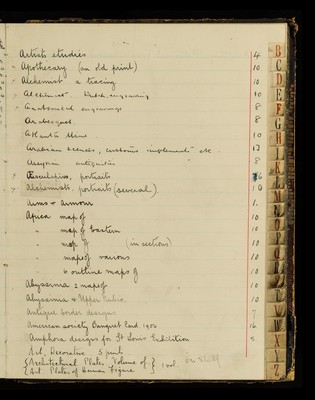 Artists studies 4
" Apothecary (an old print) 10
" Alchemist a tracing 10
" Alchemist Dutch engraving 10
" Anatomical engravings 8
Arabesques 8
Atlantic liners 10
Arabian scenes, customs implements etc. 17
Assyrian antiquities 8
Æsculapius, portraits 16
Alchemists, portraits (several) 10
Arms & Armour 1.
Africa map of 10
" map of Eastern 10
" map of (in sections) 10
" maps of various 10
" 6 outline maps of 10
Abyssinia 2 maps of 10
Abyssinia & Upper Nubia 10
Antique border designs 7
American society Banquet Card 1906 16
Amphora designs for St Louis Exhibition 5
Art, Decorative 5 prints
{Architectural Plates, Volume of} 1 vol
{Art. Plates of Human Figure}
B
C
D
E
F
G
H
I
L
M
N
O
Q
R
S
T
U
V
W
X
Y
Z